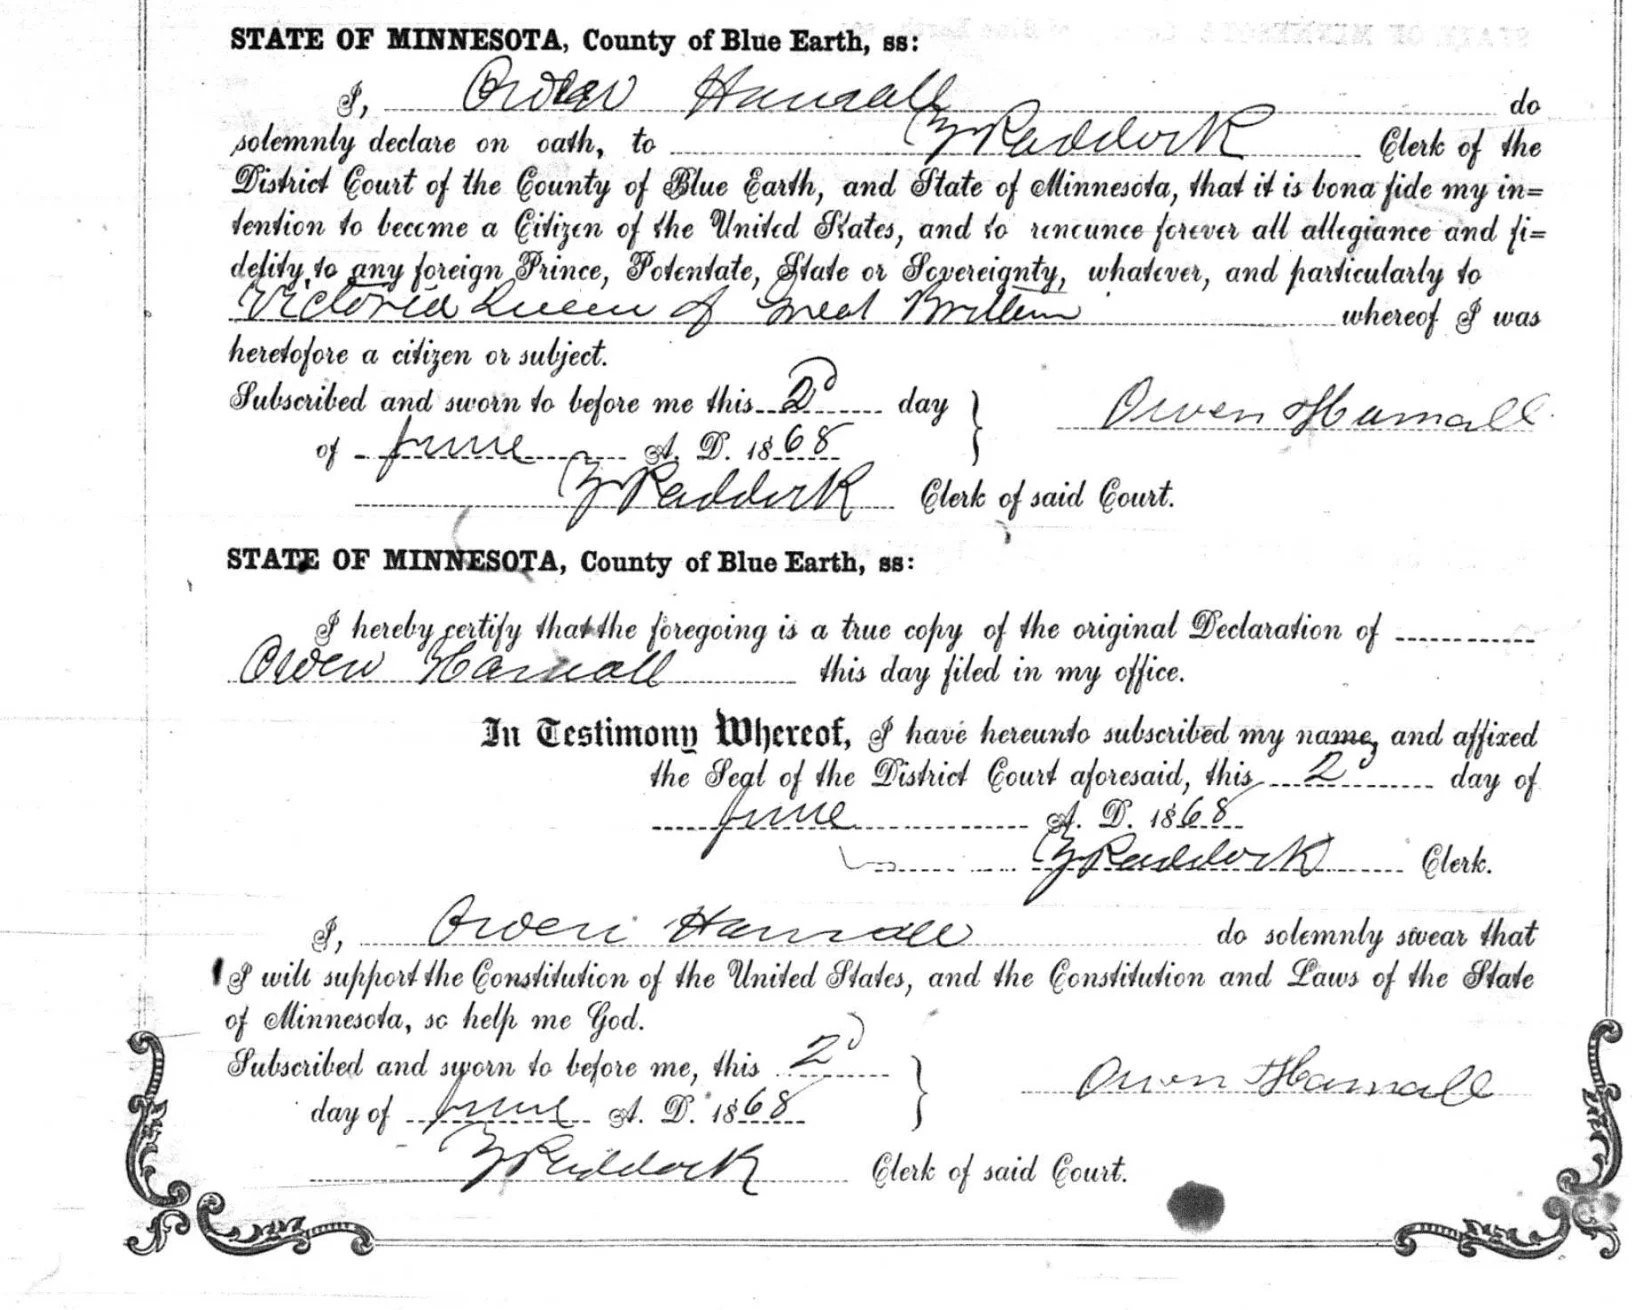 STATE OF MINNESOTA, County of Blue Earth, ss:
I, Owen Hamall do
solemnly declare on oath, to Paddock Clerk of the
District Court of the County of Blue Earth, and State of Minnesota, that it is bona fide my in=
tention to become a Citizen of the United States, and to renounce forever all allegiance and fi=
delity to any foreign Prince, Potentate, State or Sovereignty, whatever, and particularly to
Victoria Queen of Great Brittain whereof I was
heretofore a citizen or subject.
Subscribed and sworn to before me this 2d day
Owen Hamall
of June A. D. 1868
Paddock Clerk of said Court.
STATE OF MINNESOTA, County of Blue Earth, ss:
I hereby certify that the foregoing is a true copy of the original Declaration of
Owen Hamall this day filed in my office.
In Testimony Whereof, I have hereunto subscribed my name, and affixed
the Seal of the District Court aforesaid, this 2d day of
June A. D. 1868
Paddock Clerk.
I, Owen Hamall do solemnly swear that
I will support the Constitution of the United States, and the Constitution and Laws of the State
of Minnesota, so help me God.
Subscribed and sworn to before me, this 2d
Owen Hamall
day of June A. D. 1868
Paddock Clerk of said Court.